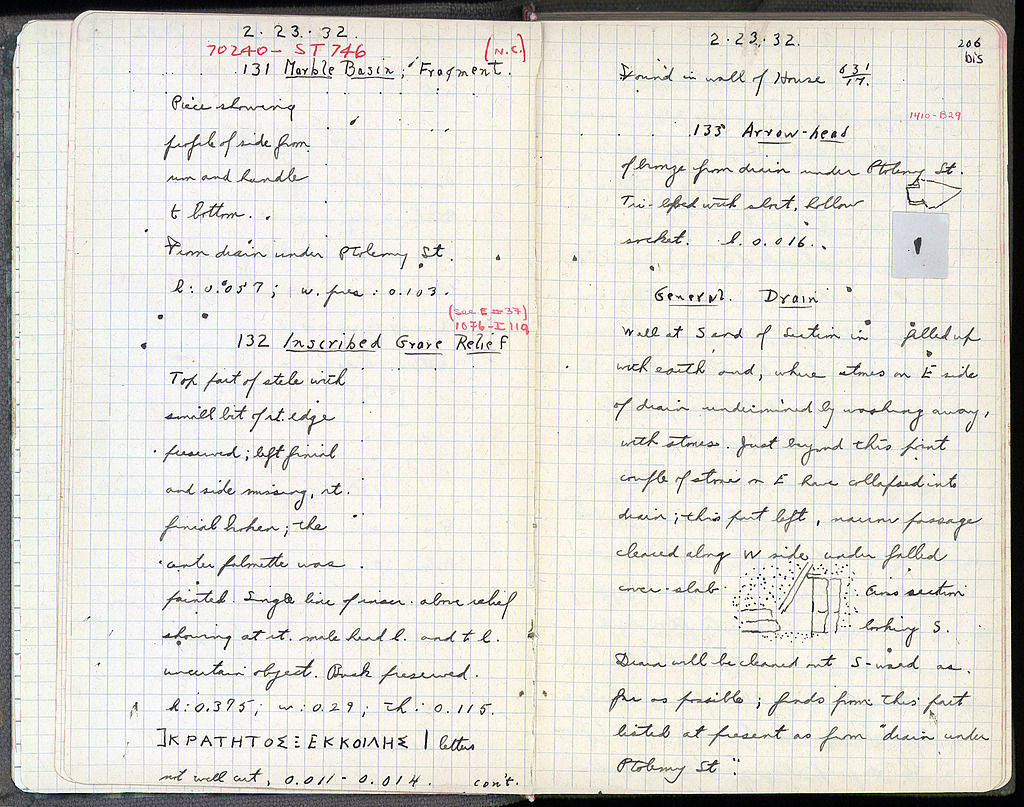 2·23·32.
70240- ST 746 (N.C.)
131 Marble Basin; Fragment.
Piece showing
profile of side from
rim and handle
to bottom.
From drain under Ptolemy St.
h: 0.057; w. pres: 0.103.
(see E #37)
1076-I 119
132 Inscribed Grave Relief
Top part of stele with
small bit of rt. edge
preserved; left finial
and side missing, rt.
finial broken; the
center palmette was
painted. Single line of inscr. above relief
showing at rt. male head l. and to l.
uncertain object. Back preserved.
h: 0.375; w: 0.29; th: 0.115.
]ΚΡΑΤΗΤΟΣΞΕΚΚΟΙΛΗΣ | letters
not well cut, 0.011 - 0.014. con't.
2·23·32.
206
bis
Found in wall of House 631/17.
1410-B29
133 Arrow-head
of bronze from drain under Ptolemy St.
Tri-lobed with short, hollow
socket. l. 0.016.
General. Drain
Wall at S end of Section in filled up
with earth and, where stones on E side
of drain undermined by washing away,
with stones. Just beyond this point
couple of stones on E have collapsed into
drain; this part left, narrow passage
cleared along W side under falled
cover-slab Cross section
looking S.
Drain will be cleaned out S-ward as
far as possible; finds from this part
listed at present as from "drain under
Ptolemy St".